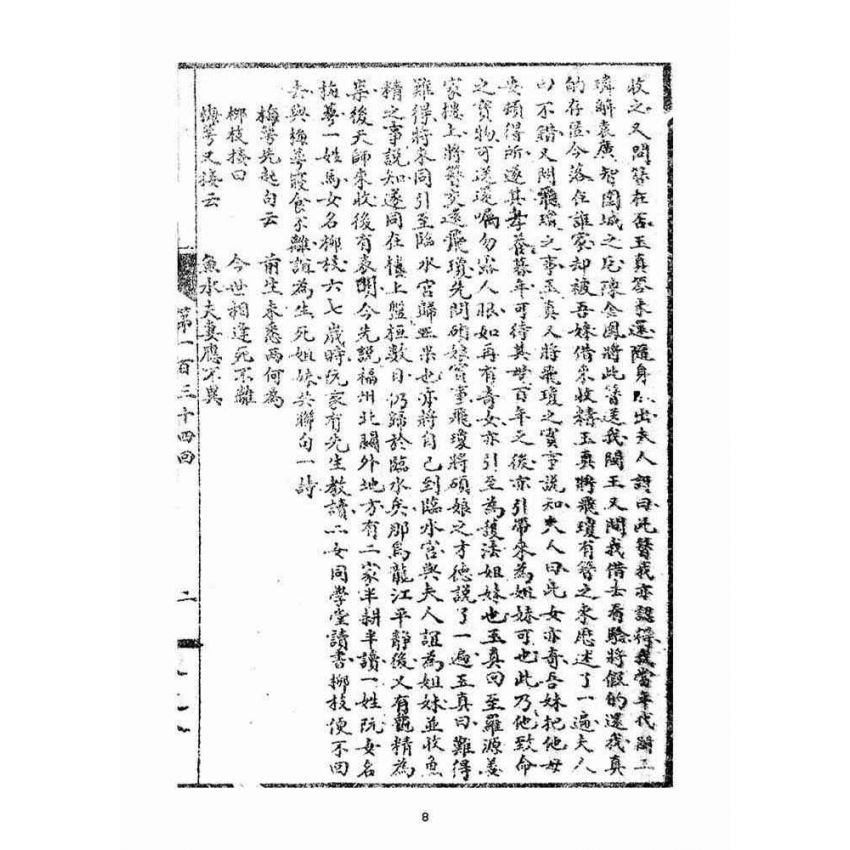 收之又問簪在否玉真答未還隨身取出夫人認曰此簪我亦認得我當年代閩王
璘解袁廣智圍城之厄陳金鳳將此簪送我閩王又問我借去看驗將假的還我真
的存侄今落在誰家却被吾妹借來收精玉真將飛瓊有簪之來歷述了一遍夫人
曰不錯又問飛瓊之事玉真人將飛瓊之實事說知夫人曰此女亦奇吾妹把他母
安頓得所遂其母養暮年可待其母百年之後亦引帶來為姐妹可也此乃他致命
之寶物可送還囑勿露人眼如再有奇女亦引至為護法姐妹也玉真回至羅源姜
家樓上將簪交還飛瓊先問碩娘實事飛瓊將碩娘之才德說了一遍玉真曰難得
難得將來同引至臨水宮歸班果也亦將自己到臨水宮與夫人誼為姐妹並收魚
精之事說知遂同在樓上盤桓數日仍歸於臨水矣那烏龍江平靜後又有 精為
祟後天師來收後有表明今先說福州北關外地方有二家半耕半讀一姓阮女名
梅萼一姓馬女名柳枝六七歲時阮家有先生教讀二女同學堂讀書柳枝便不回
去與梅萼寢食不離誼為生死姐妹共聯句一詩
梅萼先起句云 前生未悉兩何為
柳枝接曰 今世相逢死不離
梅萼又接云 魚水夫妻應不異
第一百三十四回 二
8